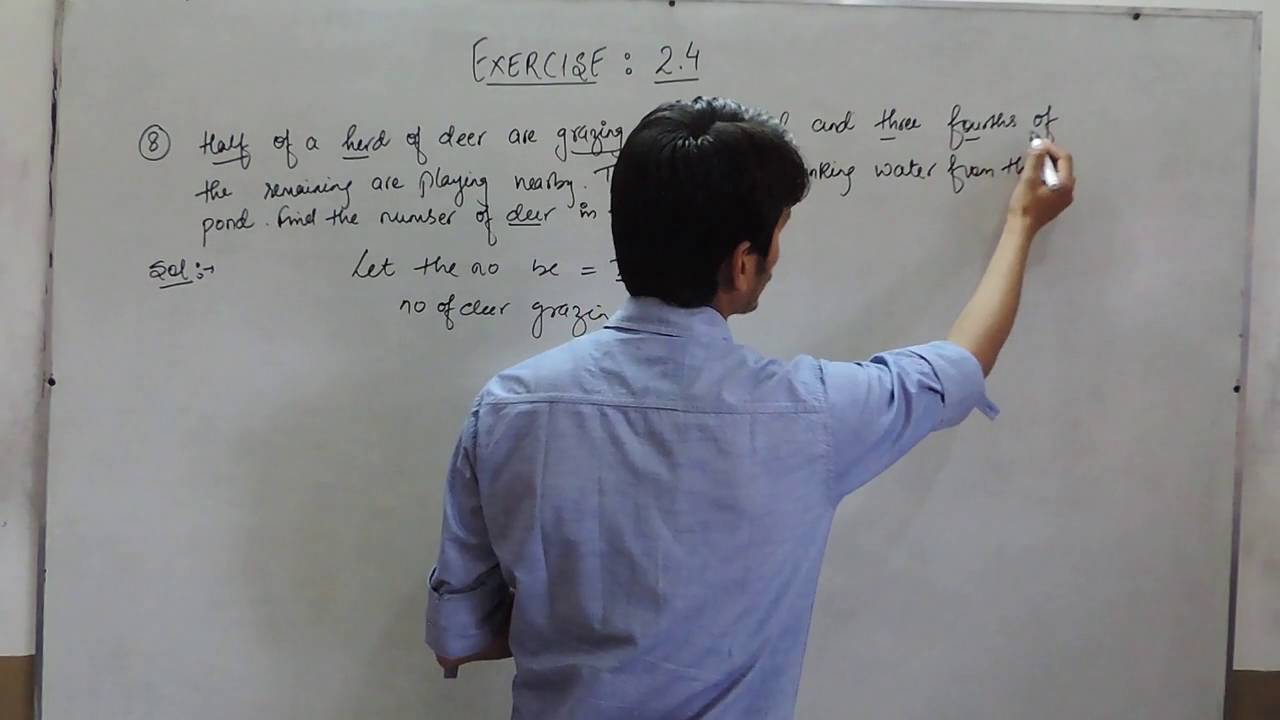 EXERCISE : 2.4
8 Half of a herd of deer are grazing and three fourths of
the remaining are playing nearby. water from
pond. Find the number of deer in
Sol :- Let the no be =
no of deer